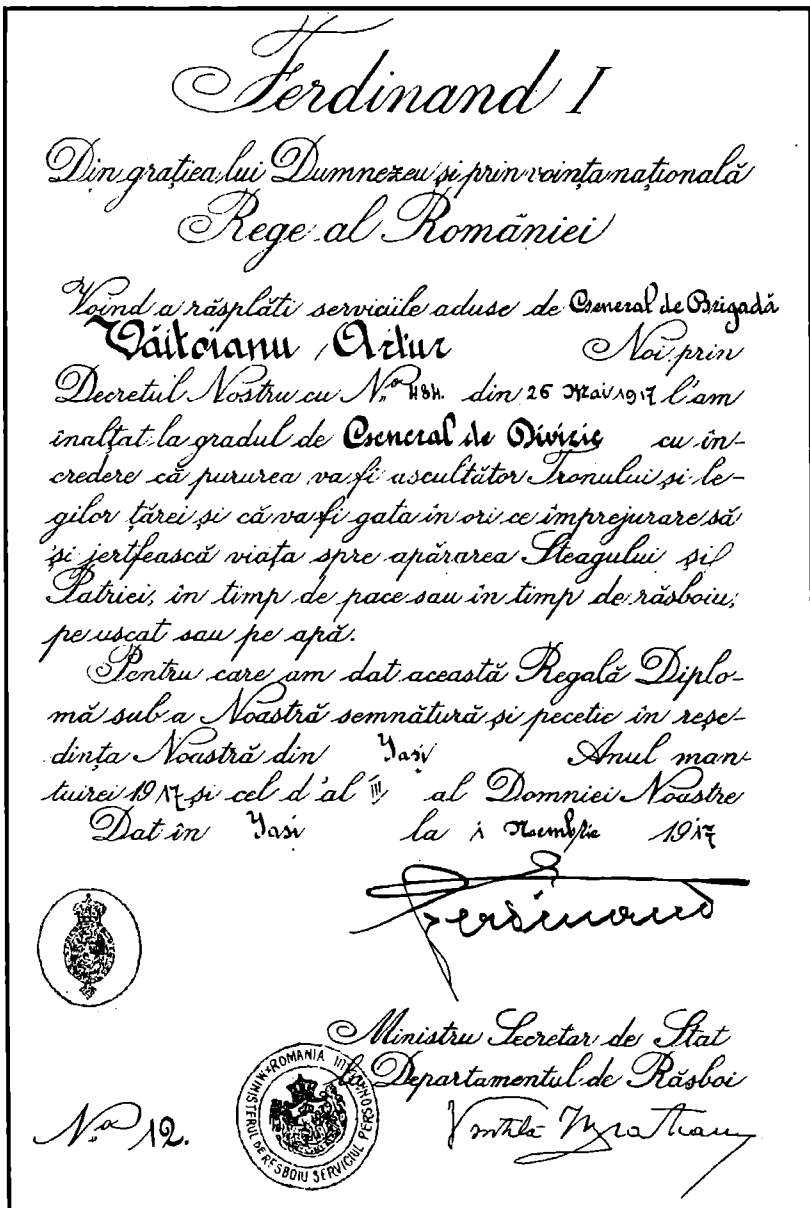 Ferdinand I
Din grația lui Dumnezeu și prin voința națională
Rege al României
Voind a răsplăti serviciile aduse de General de Brigadă
Văitoianu Artur Noi prin
Decretul Nostru cu No 484. din 26 Mai 1917 l'am
înalțat la gradul de General de Divizie cu în-
credere că pururea va fi ascultător Tronului și le-
gilor țărei și că va fi gata in ori ce împrejurare să
și jertfească viața spre apărarea Steagului și
Patriei, in timp de pace sau in timp de răsboiu;
pe uscat sau pe apă.
Pentru care am dat această Regală Diplo-
mă sub a Noastră semnătură și pecetie in reșe-
dința Noastră din Iași Anul man-
tuirei 1917 și cel d'al III al Domniei Noastre
Dat in Iași la 1 Noembrie 1917
Ferdinand
Ministru Secretar de Stat
la Departamentul de Răsboi
ROMANIA
MINISTERUL DE RESBOIU SERVICIUL PERSONAL
Vintilă Brătianu
No 12.